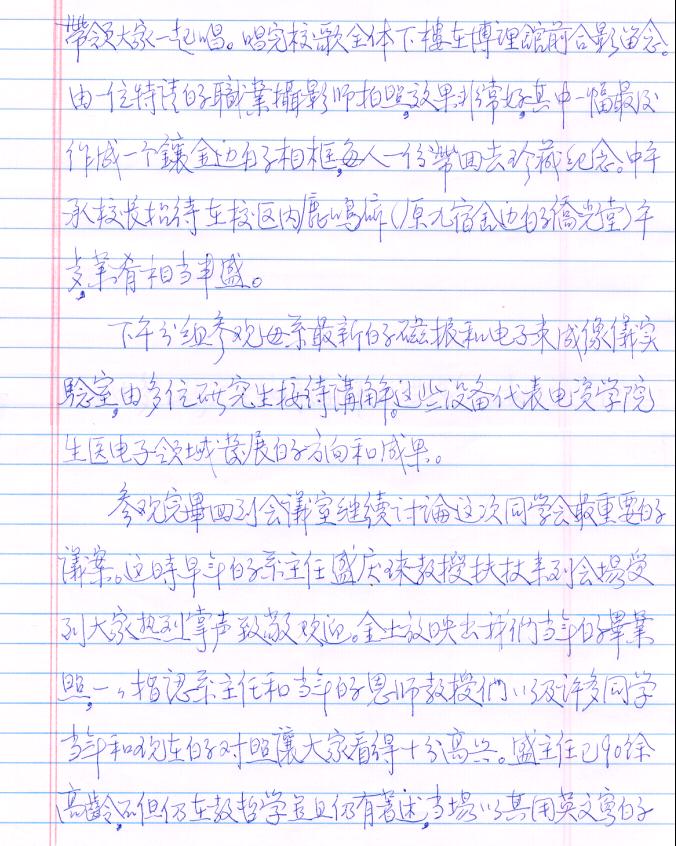 帶领大家一起唱。唱完校歌全体下樓在博理館前合影留念。
由一位特请的職業攝影师拍照,效果非常好,其中一幅最后
作成一个鑲金边的相框,每人一份帶回去珍藏纪念。中午
承校長招待在校区内鹿鸣廳(原九宿舍边的僑光堂)午
宴,菜肴相当丰盛。
下午分组参观母系最新的磁振和电子束成像儀实
驗室,由多位研究生接待講解。这些设备代表电资学院
生医电子领域發展的方向和成果。
参观完畢回到会議室继续讨論这次同学会最重要的
議案。这時早年的系主任盛庆琜教授扶杖来到会場受
到大家热烈掌声致敬欢迎。金土放映出我們当年的畢業
照,一一指認系主任和当年的恩师教授們以及许多同学
当年和现在的对照讓大家看得十分高兴。盛主任已90余
高齡,不但仍在教哲学並且仍有著述,当場以其用英文寫的